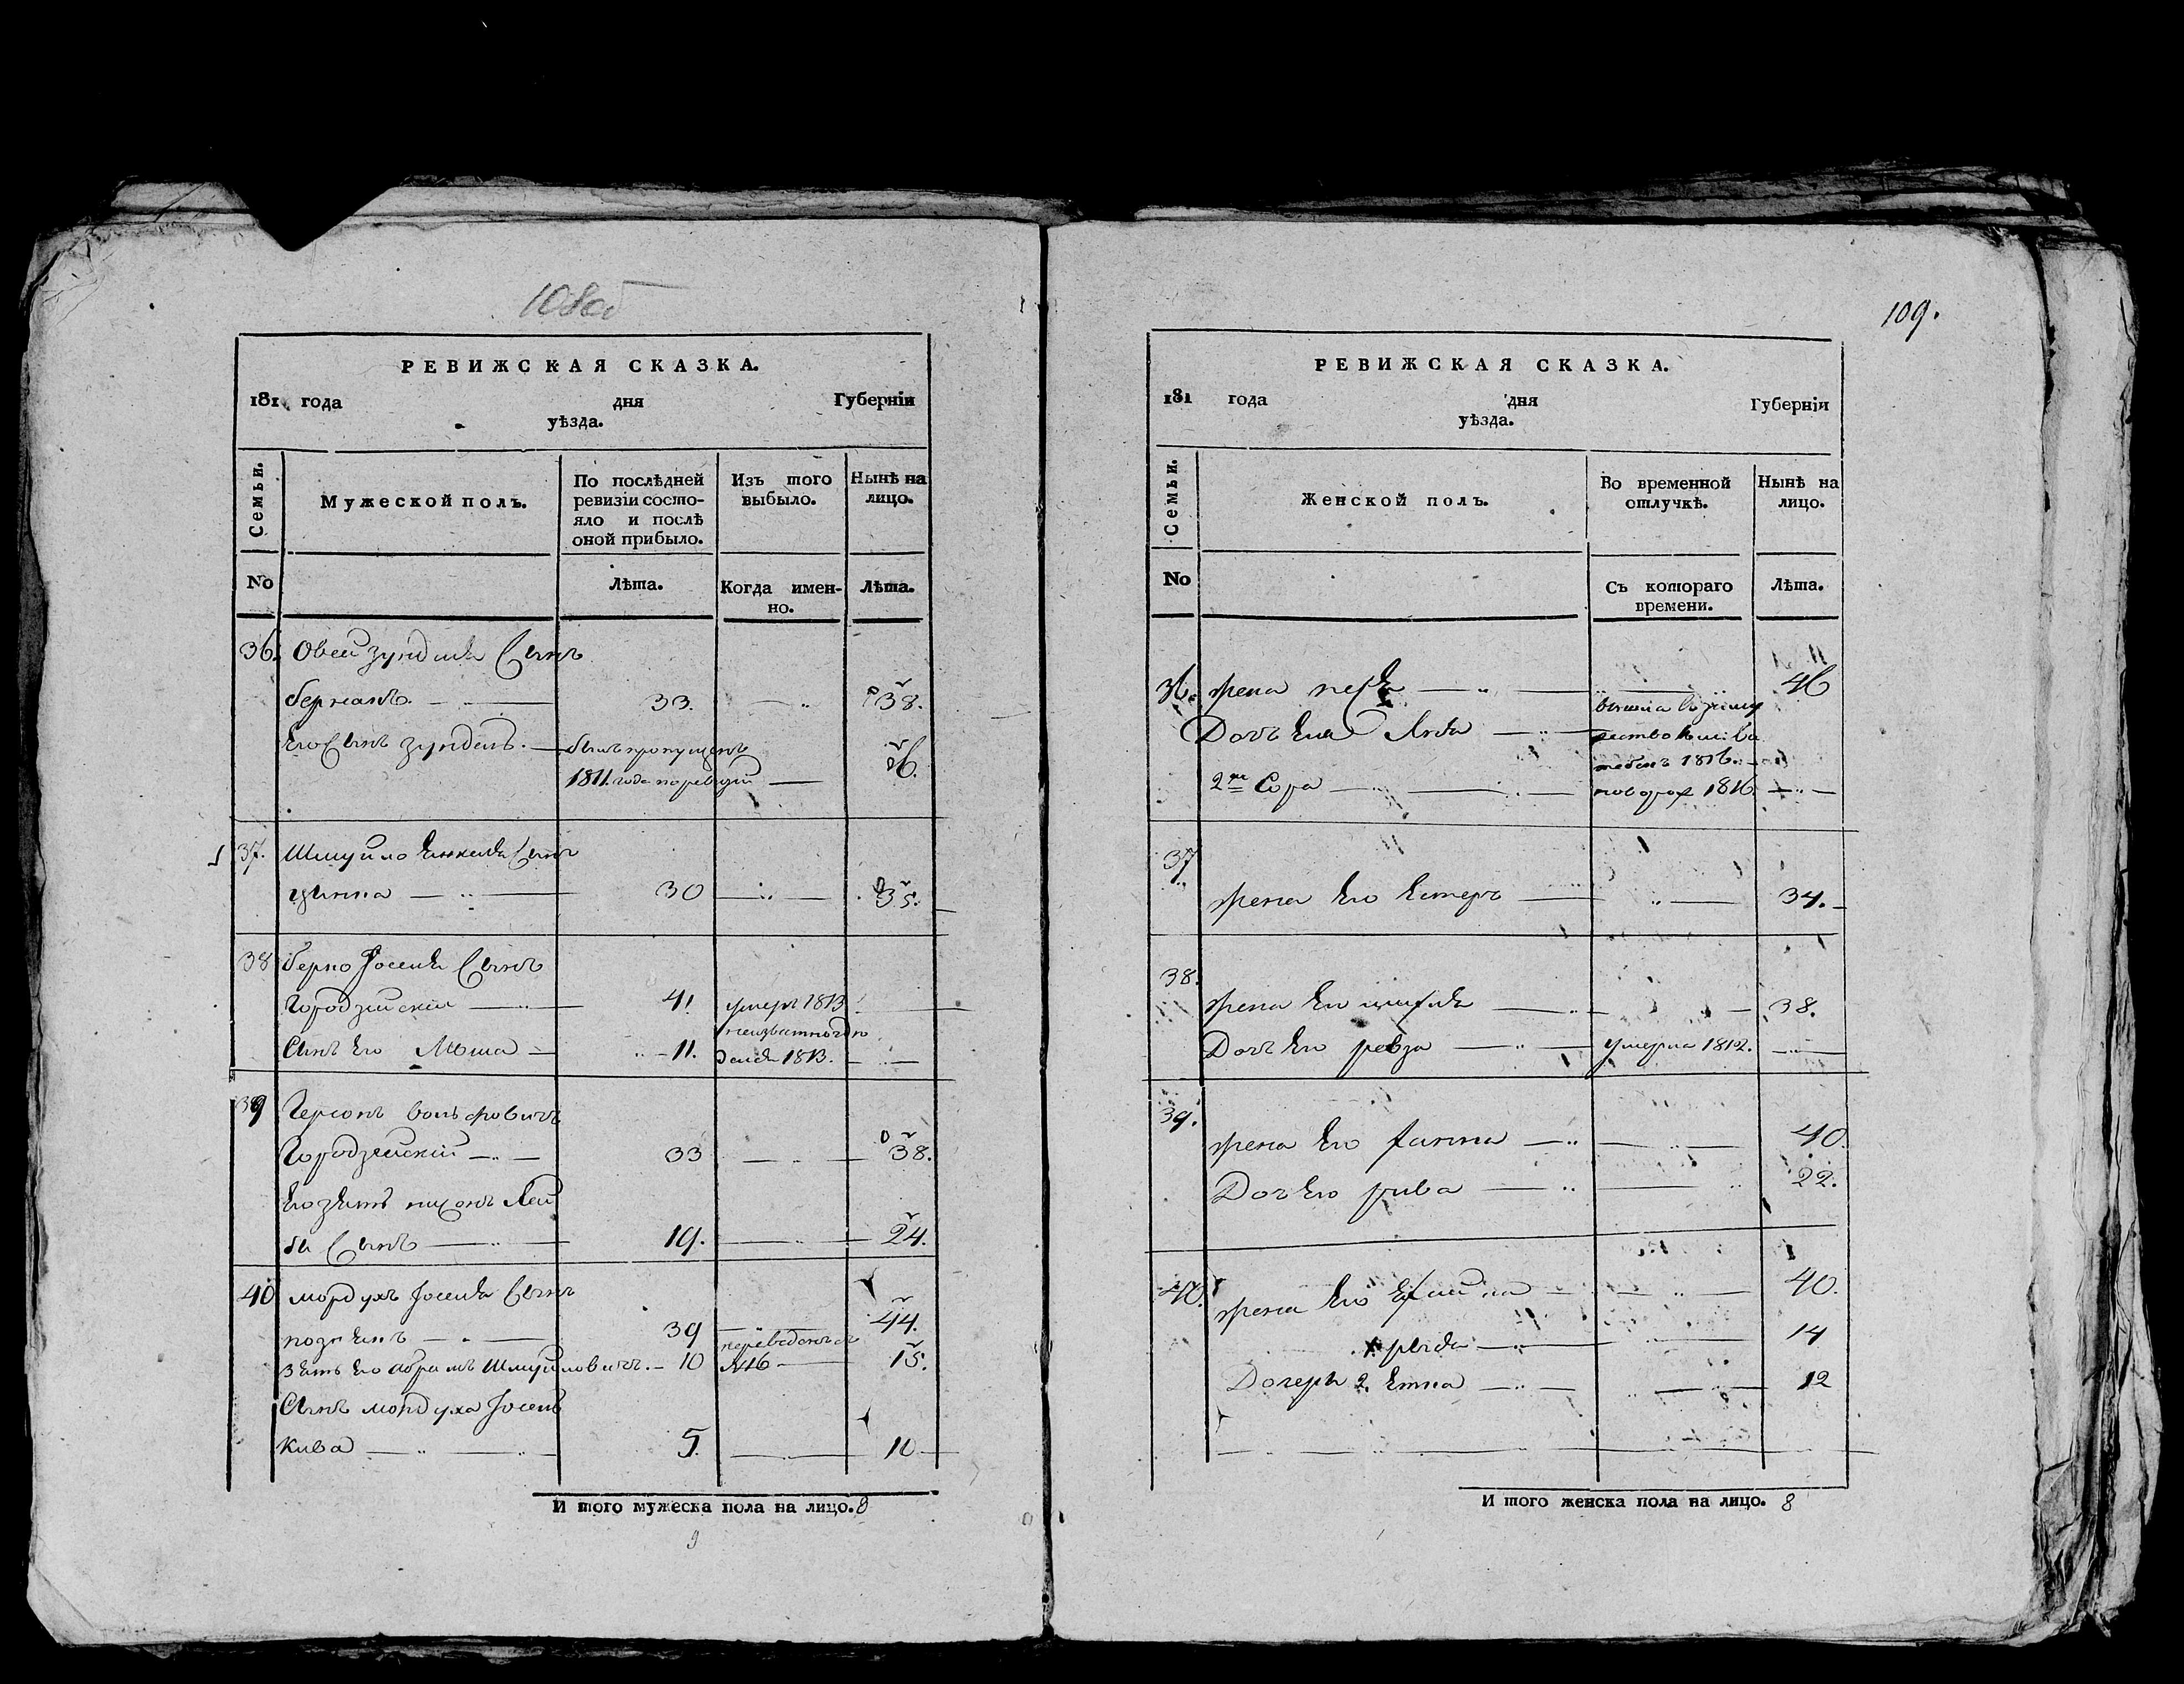 108об
РЕВИЖСКАЯ СКАЗКА.
181 года дня Губерніи
уѣзда.
Семьи.
Мужеской полъ.
По послѣдней ревизіи состо-
яло и послѣ оной прибыло.
Изъ того выбыло.
Нынѣ на лицо.
No
Лѣта.
Когда имен-
но.
Лѣта.
36. Овсей Зунделя Сынъ
Берманъ. 33. 38.
Его Сынъ Зундель. былъ пропущенъ
1811. года по ревизіи 6.
37. Шмуйло Янкеля Сынъ
30 35.
38 Берко Іоселя Сынъ
Городзейскій 41. умеръ 1813
Сынъ Его Мовша 11. неизвѣстно гдѣ
1813.
39 Герсонъ Вольфовичъ
Городзейскій 33 38.
Его зять Лей
бы Сынъ 19. 24.
40 Мордухъ Іоселя Сынъ
39 44.
Зять Его Абрамъ Шмуйловичъ. 10 переведенъ 15.
Сынъ Мордуха Іосель
Кива 5. 10
И того мужеска пола на лицо. 8
9
109.
РЕВИЖСКАЯ СКАЗКА.
181 года дня Губерніи
уѣзда.
Семьи.
Женской полъ.
Во временной отлучкѣ.
Нынѣ на лицо.
No
Съ котораго времени.
Лѣта.
36. Жена Песя 46
Дочь Ея вышла въ замуж
жество
1816.
2я Сора 1816.
37
Жена Его Естеръ 34.
38.
Жена Его 38.
Дочь Его умерла 1812.
39.
Жена Его 40.
Дочь Его Рива 22.
40. Жена Его 40.
14
Дочери 2. Етка 12
И того женска пола на лицо. 8